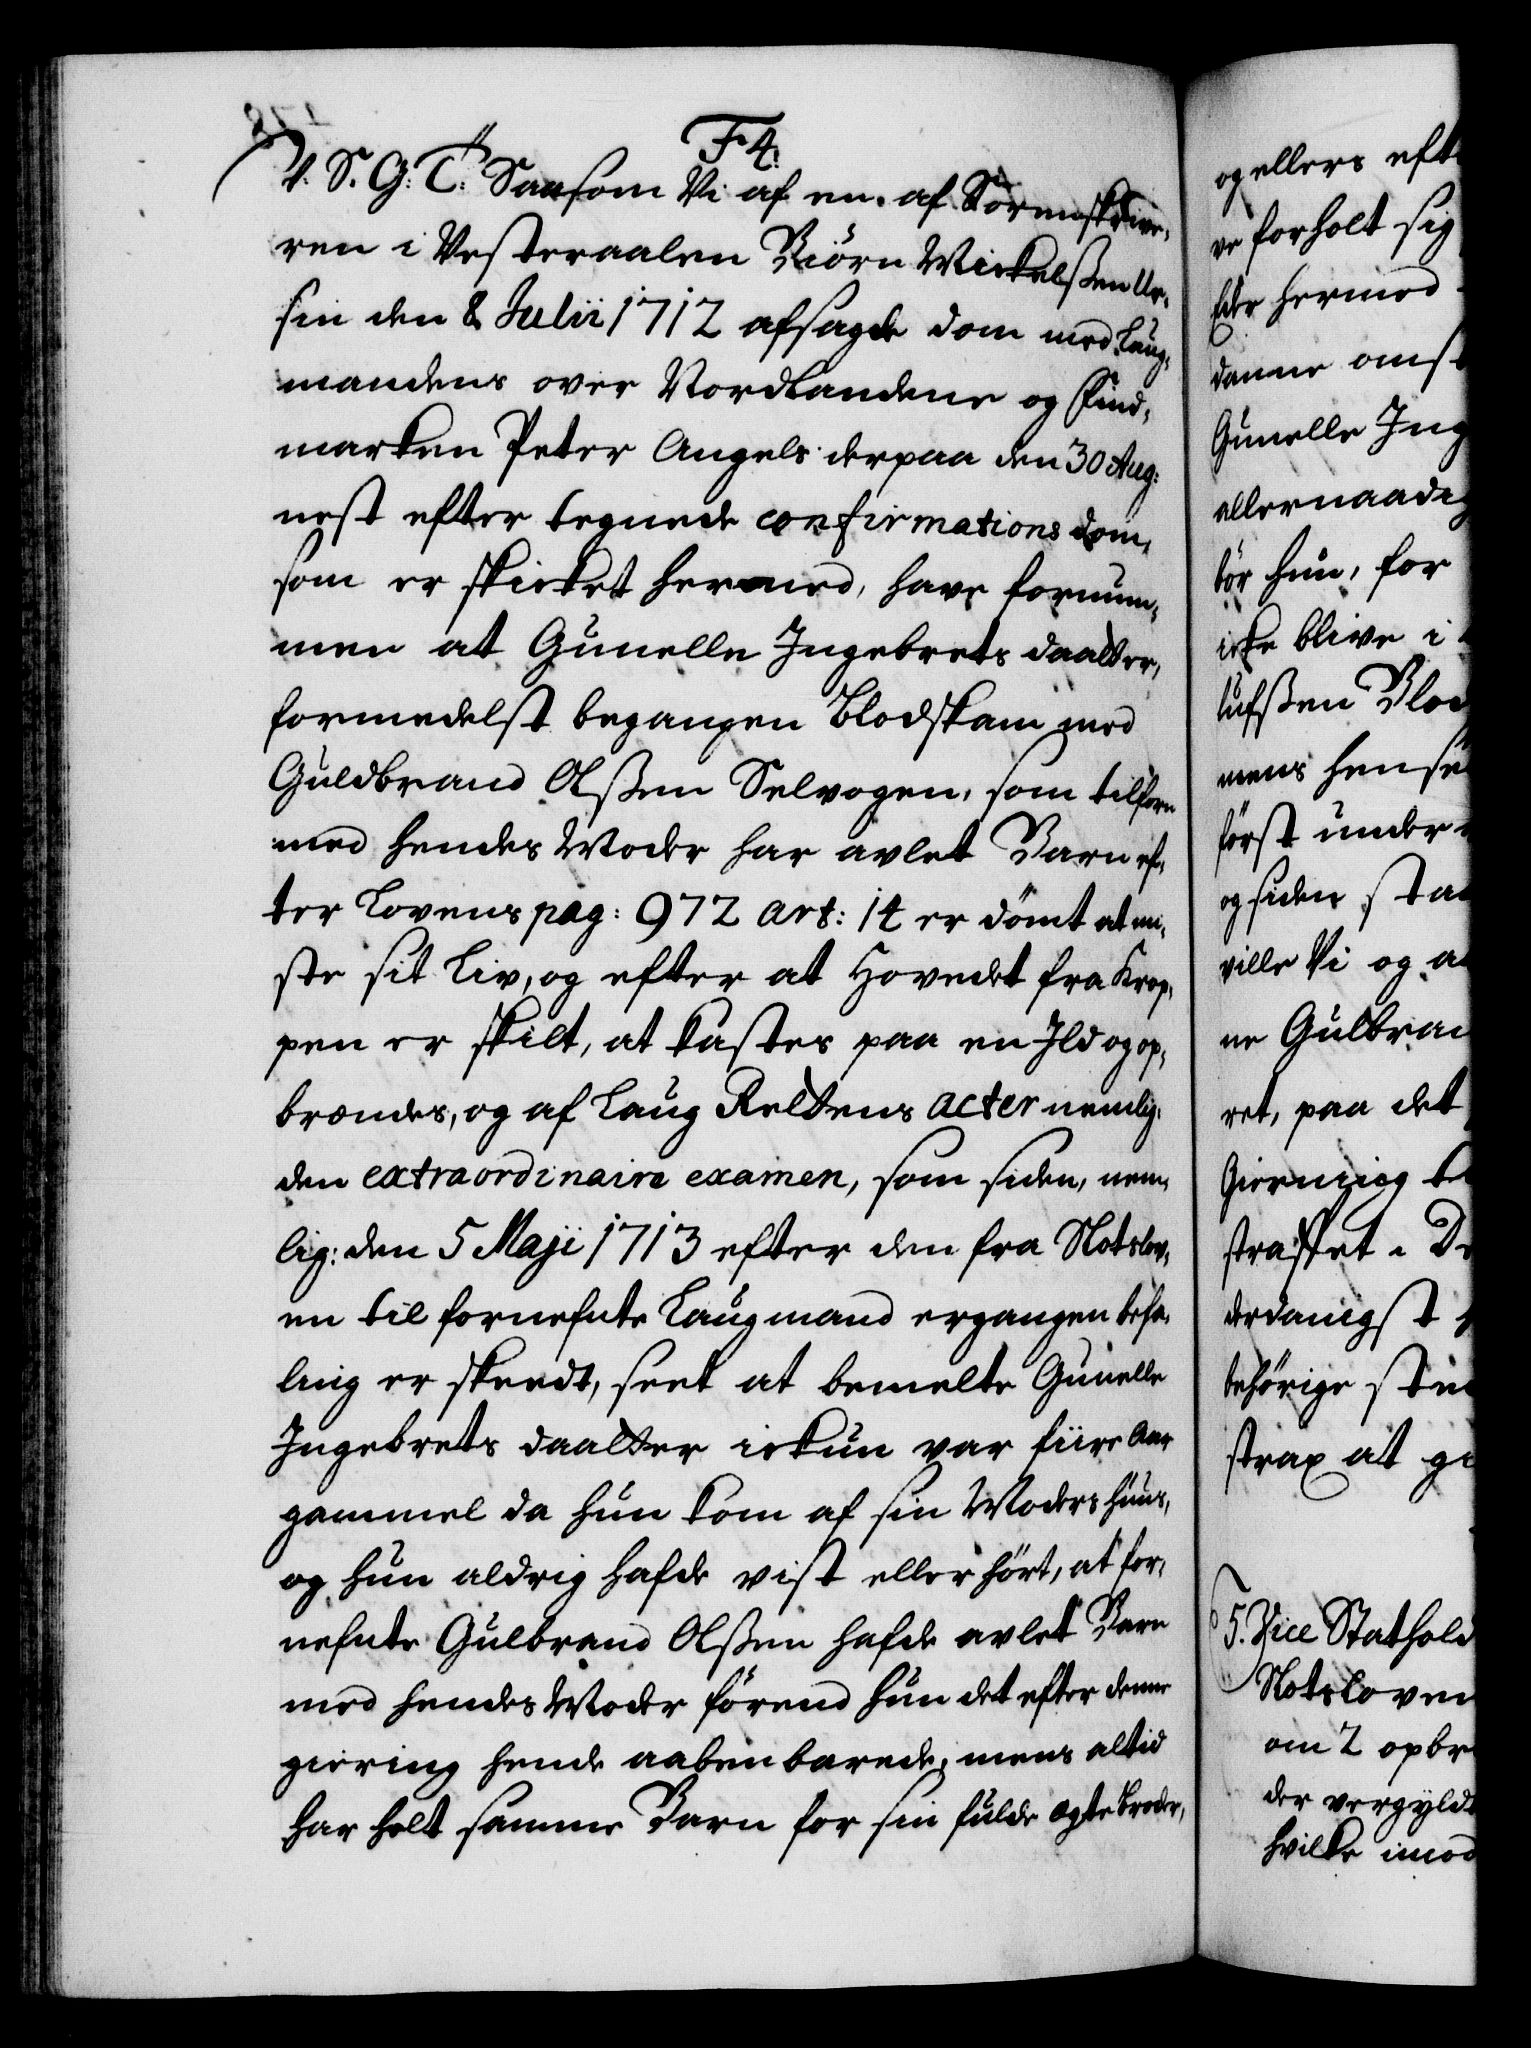 F 4.
V. S. G: T: Saasom Vi af en af Sorenskrive,
ren i Vesteraalen Biörn Mickelssen
sin den 8 Julii 1712 afsagde dom med Laug,
mandens over Nordlandene og Find,
marken Peter Angels derpaa den 30 Aug:
nest efter tegnede confirmations dom,
som er skicket hermed, have fornum,
men at Gunelle Ingebrets daatter,
formedelst begangen Blodskam med
Guldbrand Olssen Selvogen, som tilforn
med hendes Moder har avlet Barn ef,
ter Lovens pag: 972 art: 14 er dömt at mi,
ste sit Liv, og efter at Hovedet fra Krop,
pen er skilt, at kastes paa en Ild og op,
brændes, og af Laug Rettens acter nemlig:
den extraordinaire examen, som siden, nem,
lig: den 5 Maji 1713 efter den fra Slotslov,
en til fornefnte Laugmand ergangen befa,
ling er skeedt, seet at bemelte Gunelle
Ingebrets daatter ickun var fiire Aar
gammel da hun kom af sin Moders huus,
og hun aldrig hafde vist eller hört, at for,
nefnte Gulbrand Olssen hafde avlet Barn
med hendes Moder förend hun det efter denne
giering hende aabenbarede, mens altid
har holt samme Barn for sin fulde ægte broder,
og ellers eft
ve forholt sig
Eder hermed
danne omst
Gunelle Ing
allernaadig
bör hun, for
icke blive i
lufssen Blod
mens hense
först under
og siden sta
ville Vi og a
ne Gulbran
ret, paa det
Gierning
straffet. D
derdanigst
behörige ste
strax at gi
5. Vice Stathold
Slotsloven
om 2 opbr
der vergyld
hvilke imod